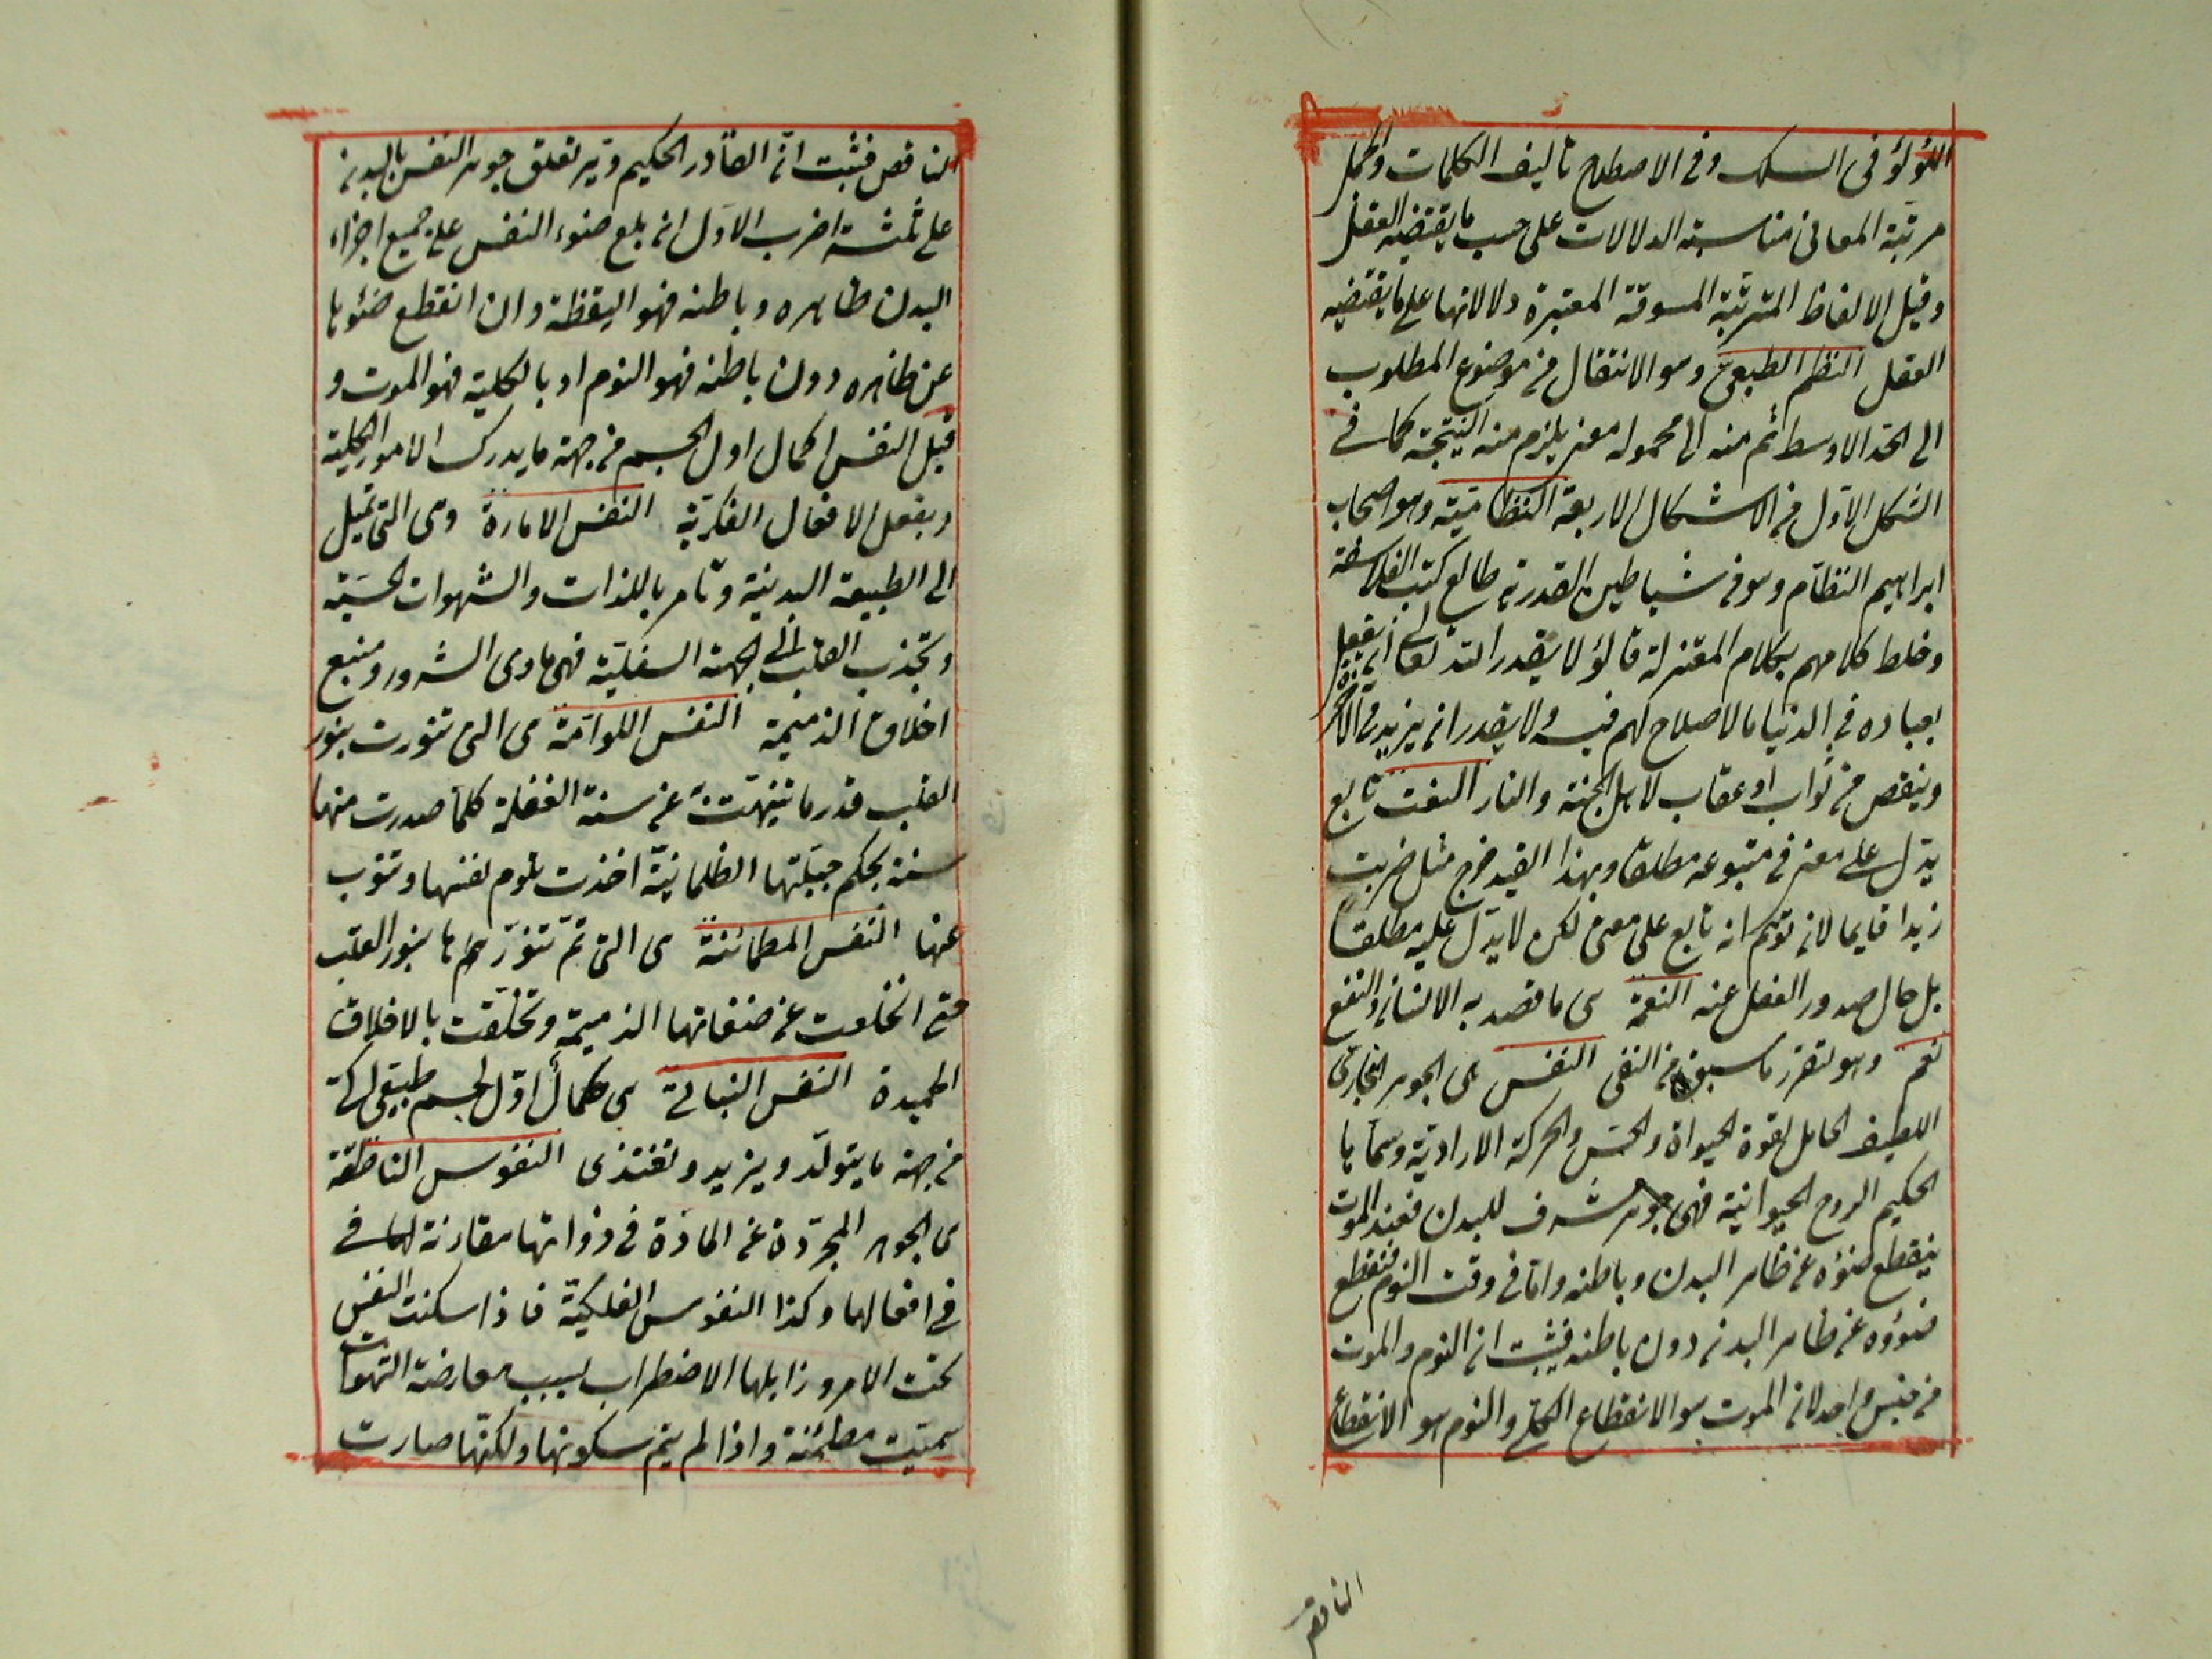 اللؤلؤ فى السلك وفى الاصطلاح تأليف الكلمات والجمل
مرتبة المعانى متناسبة الدلالات على حسب ما يقتضيه العقل
وقيل الالفاظ المترتبة المسوقة المعتبرة دلالاتها على ما يقتضيه
العقل النظم الطبعى وهو الانتقال من موضوع المطلوب
الى الحد الاوسط ثم منه الى محموله حتى يلزم منه النتيجة كما فى
الشكل الاول من الاشكال الاربعة النظامية وهو اصحاب
ابراهيم النظام وهو من شياطين القدرية طالع كتب الفلاسفة
وخلط كلامهم بكلام المعتزلة قالوا لا يقدر الله تعالى ان يفعل
بعباده فى الدنيا ما لا صلاح لهم فيه ولا يقدر ان يزيد فى الاخرة
وينقص من ثواب او عقاب لاهل الجنة والنار النعت تابع
يدل على معنى فى متبوعه مطلقا وبهذا القيد خرج مثل ضربت
زيدا قايما لانه توهم انه تابع على معنى لكن لا يدل عليه مطلقا
بل حال صدور الفعل عنه النعمة هى ما قصد به الانسان والنفع
نعم وهو لتقرر ما سبق من النفى النفس هى الجوهر البخارى
اللطيف الحامل لقوة الحيواة والحس والحركة الارادية وسماها
الحكيم الروح الحيوانية فهى جوهر مشرف للبدن فعند الموت
ينقطع ضوؤه عن ظاهر البدن وباطنه واما فى وقت النوم فينقطع
ضوؤه عن ظاهر البدن دون باطنه فيثبت ان النوم والموت
من جنس واحد لان الموت هو الانقطاع الكلى والنوم هو الانقطاع
الناقص
الناقص فثبت ان القادر الحكيم دبر تعلق جوهر النفس بالبدن
على ثلثة اضرب الاول ان بلغ ضوء النفس على جميع اجزاء
البدن ظاهره وباطنه فهو اليقظة وان انقطع ضوئها
عن ظاهره دون باطنه فهو النوم او بالكلية فهو الموت و
قيل النفس كمال اول الجسم من جهة ما يدرك الامور الكلية
ويفعل الافعال الفكرية النفس الامارة وهى التى تميل
الى الطبيعة البدنية وتامر باللذات والشهوات الحسية
وتجذب القلب الى الجهة السفلية فهى ماوى الشرور ومنبع
اخلاق الذميمة النفس اللوامة هى التى تنورت بنور
القلب قدر ما تنبهت عن سنة الغفلة كلما صدرت منها
سيئة بحكم جبلتها الظلمانية اخذت تلوم نفسها وتتوب
عنها النفس المطمائنة هى التى تم تنورها بنور القلب
حتى انخلعت عن صفاتها الذميمة وتخلقت بالاخلاق
الحميدة النفس النباتى هى كمال اول لجسم طبيعى آلى
من جهة ما يتولد ويزيد وتغتذى النفوس الناطقة
هى الجوهر المجردة عن المادة فى ذواتها مقارنة لها فى
فى افعالها وكذا النفوس الفلكية فاذا سكنت النفس
تحت الامر وزايلها الاضطراب بسبب معارضة الشهوات
سميت مطمئنة واذا لم يتم سكونها ولكنها صارت